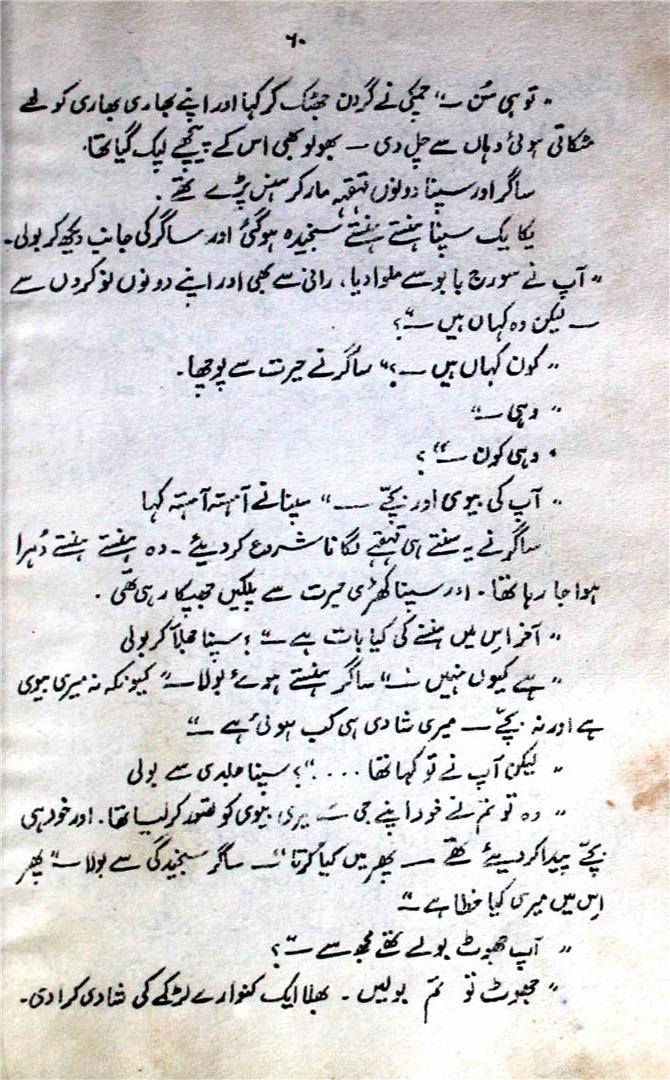 ۶۰
" تو ہی سُن ـــ" چمپکی نے گردن جھٹک کر کہا اور اپنے بھاری بھاری کولہے
مٹکاتی ہوئی وہاں سے چل دی ـــ بھولو بھی اس کے پیچھے لپک گیا تھا۔
ساگر اور سپنا دونوں قہقہہ مار کر ہنس پڑے تھے۔
یکایک سپنا ہنستے ہنستے سنجیدہ ہوگئی اور ساگر کی جانب دیکھ کر بولی۔
" آپ نے سورج بابو سے ملوا دیا، رانی سے بھی اور اپنے دونوں نوکروں سے
ـــ لیکن وہ کہاں ہیں ـــ"؟
" کون کہاں ہیں ـــ؟" ساگر نے حیرت سے پوچھا۔
" وہی ـــ"
" وہی کون ـــ"؟
" آپ کی بیوی اور بچّے ـــ" سپنا نے آہستہ آہستہ کہا
ساگر نے یہ سنتے ہی قہقہے لگانا شروع کردیئے ۔ وہ ہنستے ہنستے دُہرا
ہوا جا رہا تھا۔ اور سپنا کھڑی حیرت سے پلکیں جھپکا رہی تھی۔
" آخر اس میں ہنسنے کی کیا بات ہے ـــ"؟ سپنا جھلّا کر بولی
" ہے کیوں نہیں ـــ" ساگر ہنستے ہوئے بولا ـــ" کیونکہ نہ میری بیوی
ہے اور نہ بچّے ـــ میری شادی ہی کب ہوئی ہے ـــ"
" لیکن آپ نے تو کہا تھا . . . ."؟ سپنا جلدی سے بولی
" وہ تو تم نے خود اپنے جی سے میری بیوی کو تصور کرلیا تھا۔ اور خود ہی
بچّے پیدا کردیئے تھے ـــ پھر میں کیا کرتا" ـــ ساگر سنجیدگی سے بولا ـــ" پھر
اِس میں میری کیا خطا ہے ـــ"
" آپ جھوٹ بولے تھے مجھ سے ـــ"؟
" جھوٹ تو تم بولیں ۔ بھلا ایک کنوارے لڑکے کی شادی کرادی۔